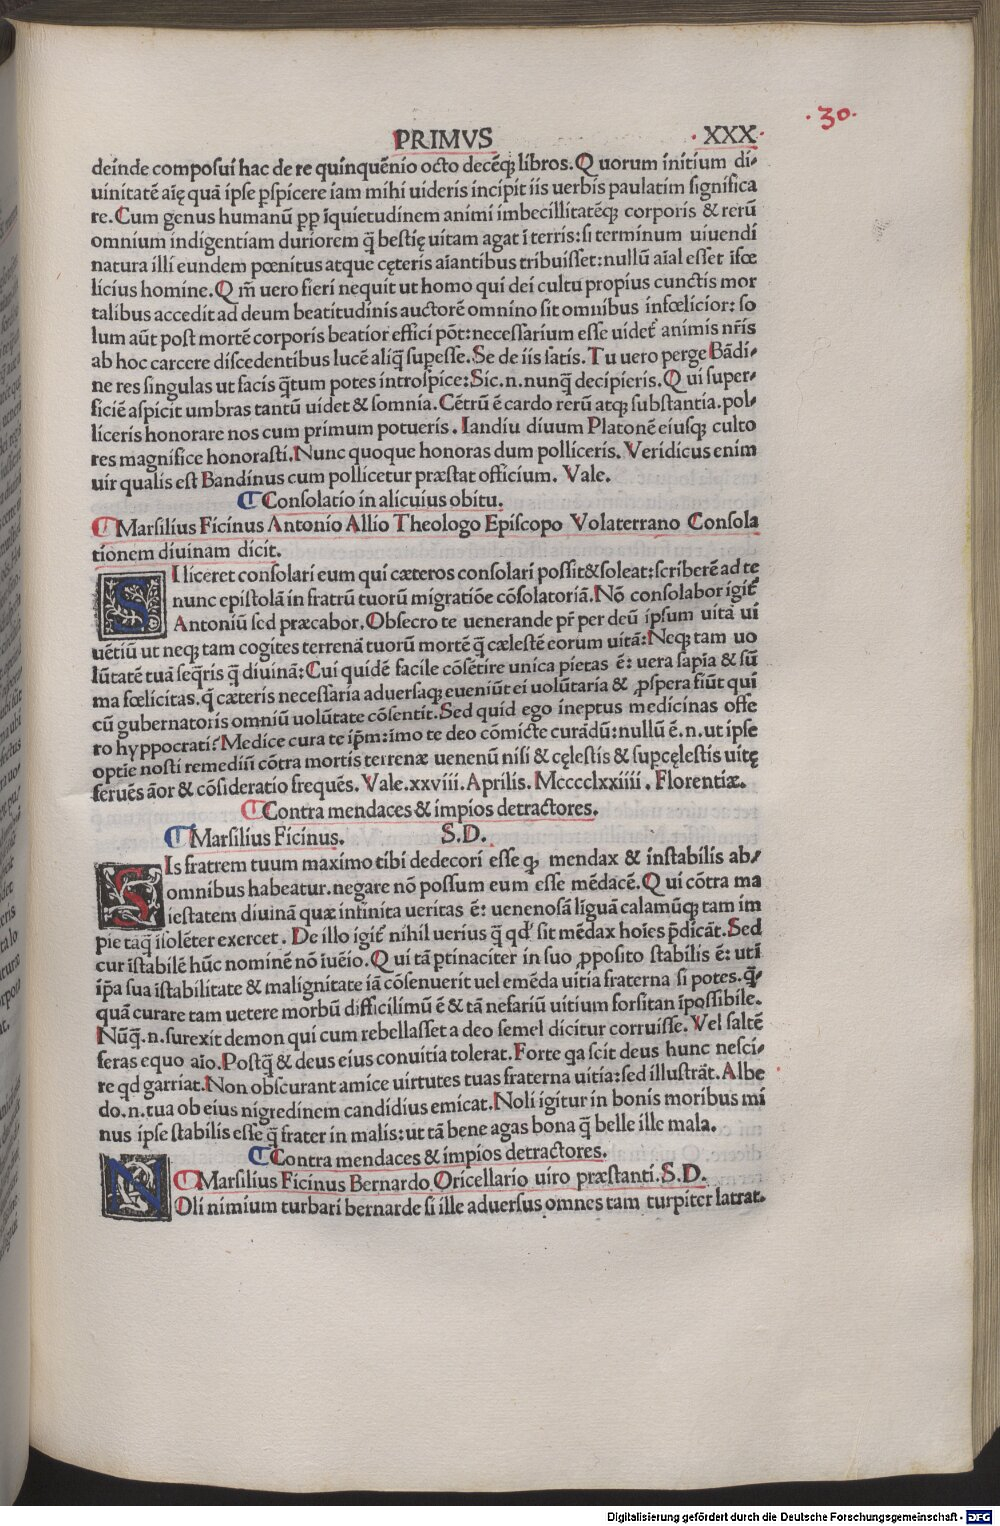 ·30·
PRIMVS ·XXX·
deinde composui hac de re quinquēnio octo decēq; libros. Quorum initium di-
uinitatē aīę quā ipse ꝑspicere iam mihi uideris incipit iis uerbis paulatim significa
re. Cum genus humanū ꝓꝑ īquietudinem animi imbecillitatēq; corporis & rerū
omnium indigentiam duriorem q̄ bestię uitam agat ī terris: si terminum uiuendi
natura illi eundem pœnitus atque cęteris aīantibus tribuisset: nullū aīal esset īfœ
licius homine. Qm̄ uero fieri nequit ut homo qui dei cultu propius cunctis mor
talibus accedit ad deum beatitudinis auctorē omnino sit omnibus infœlicior: so
lum aūt post mortē corporis beatior effici pōt: necessarium esse uidet᷑ animis nr̄is
ab hoc carcere discedentibus lucē aliq̄ supesse. Se de iis satis. Tu uero perge Bādi-
ne res singulas ut facis q̄tum potes introspice: Sic .n. nunq̄ decipieris. Qui super-
ficiē aspicit umbras tantū uidet & somnia. Cētrū ē cardo rerū atq; substantia. pol-
liceris honorare nos cum primum potueris. Iandiu diuum Platonē eiusq; culto
res magnifice honorasti. Nunc quoque honoras dum polliceris. Veridicus enim
uir qualis est Bandinus cum pollicetur præstat officium. Vale.
¶ Consolatio in alicuius obitu.
¶ Marsilius Ficinus Antonio Allio Theologo Episcopo Volaterrano Consola
tionem diuinam dicit.
SI liceret consolari eum qui cæteros consolari possit & soleat: scriberē ad te
nunc epistolā in fratrū tuorū migratiōe cōsolatoriā. Nō consolabor igit᷑
Antoniū sed præcabor. Obsecro te uenerande pr̄ per deū ipsum uitā ui
uētiū ut neq; tam cogites terrenā tuorū mortē q̄ cælestē eorum uitā: Neq; tam uo
lūtatē tuā seq̄ris q̄ diuinā: Cui quidē facile cōsētire unica pietas ē: uera sapīa & sū
ma fœlicitas. q̄ cæteris necessaria aduersaq; eueniūt ei uolūtaria & ꝓspera fiūt qui
cū gubernatoris omniū uolūtate cōsentit. Sed quid ego ineptus medicinas offe
ro hyppocrati? Medice cura te ip̄m: imo te deo cōmicte curādū: nullū ē .n. ut ipse
optie nosti remediū cōtra mortis terrenæ uenenū nisi & cęlestis & suꝑcęlestis uitę
feruēs āor & cōsideratio frequēs. Vale. xxviii. Aprilis. Mcccclxxiiii. Florentiæ.
¶ Contra mendaces & impios detractores.
¶ Marsilius Ficinus. S. D.
SIs fratrem tuum maximo tibi dedecori esse q; mendax & instabilis ab-
omnibus habeatur. negare nō possum eum esse mēdacē. Qui cōtra ma
iestatem diuinā quæ infinita ueritas ē: uenenosā liguā calamūq; tam im
pie taq̄ īsolēter exercet. De illo igit᷑ nihil uerius q̄ qd' sit mēdax hoīes p̄dicāt. Sed
cur īstabilē hūc nominē nō īuēio. Qui tā ꝑtinaciter in suo ꝓposito stabilis ē: uti
īp̄a sua īstabilitate & malignitate iā cōsenuerit uel emēda uitia fraterna si potes. q̄-
quā curare tam uetere morbū difficilimū ē & tā nefariū uitium forsitan īpossibile.
Nūq̄ .n. surexit demon qui cum rebellasset a deo semel dicitur corruisse. Vel saltē
feras equo aīo. Postq̄ & deus eius conuitia tolerat. Forte qa scit deus hunc nesci-
re qd garriat. Non obscurant amice uirtutes tuas fraterna uitia: sed illustrāt. Albe
do .n. tua ob eius nigredinem candidius emicat. Noli igitur in bonis moribus mi
nus ipse stabilis esse q̄ frater in malis: ut tā bene agas bona q̄ belle ille mala.
¶ Contra mendaces & impios detractores.
¶ Marsilius Ficinus Bernardo Oricellario uiro præstanti. S. D.
NOli nimium turbari bernarde si ille aduersus omnes tam turpiter latrat.
Digitalisierung gefördert durch die Deutsche Forschungsgemeinschaft - DFG